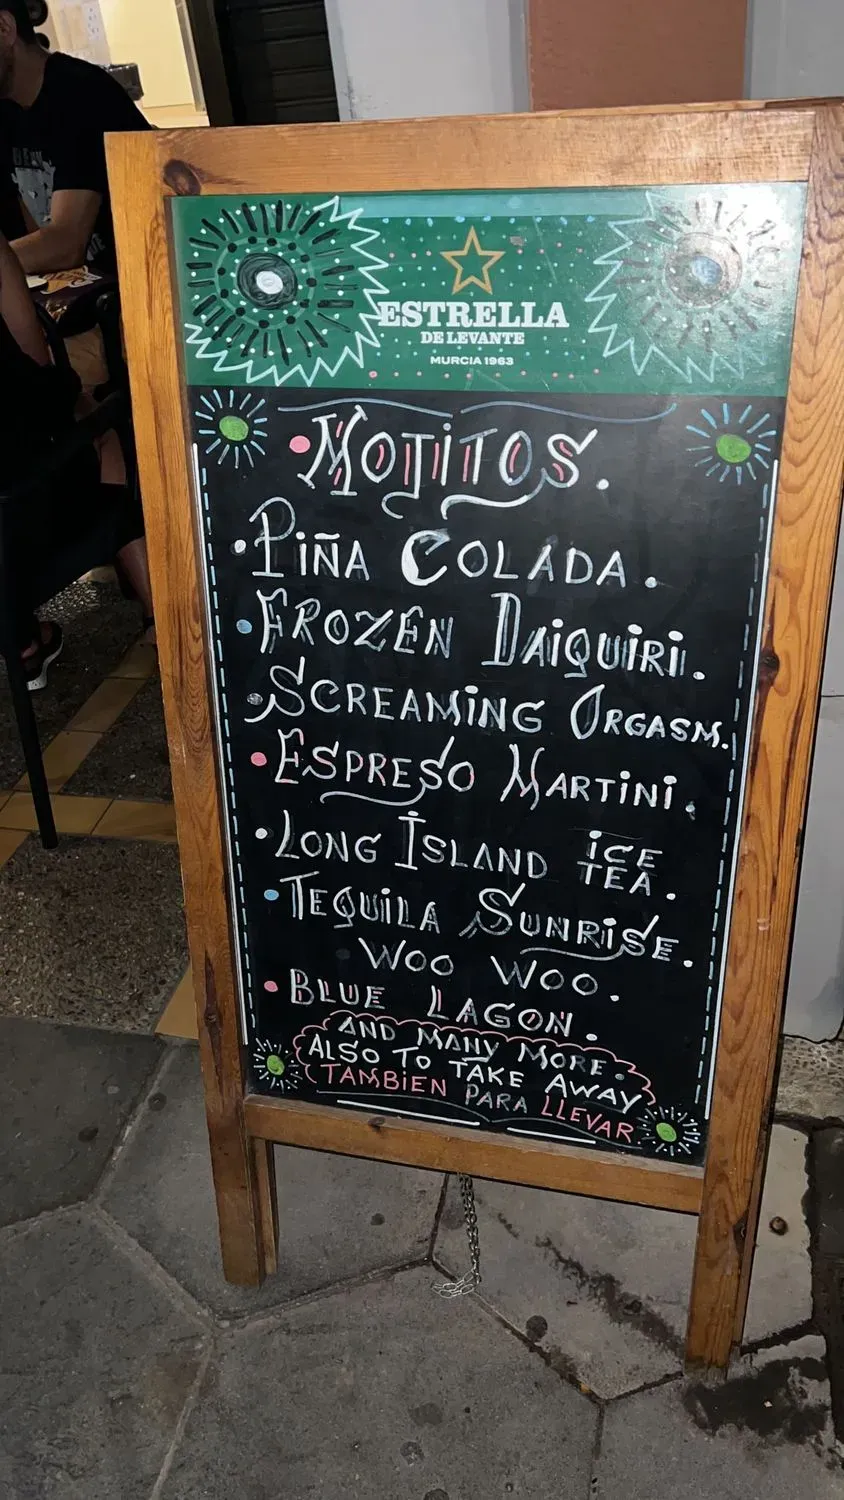 ESTRELLA
DE LEVANTE
MURCIA 1963
MOJITOS.
PIÑA COLADA.
FROZEN DAIQUIRI.
SCREAMING ORGASM.
ESPRESO MARTINI.
LONG ISLAND ICE
TEA.
TEQUILA SUNRISE.
WOO WOO.
BLUE LAGON.
AND MANY MORE.
ALSO TO TAKE AWAY
TAMBIEN PARA LLEVAR